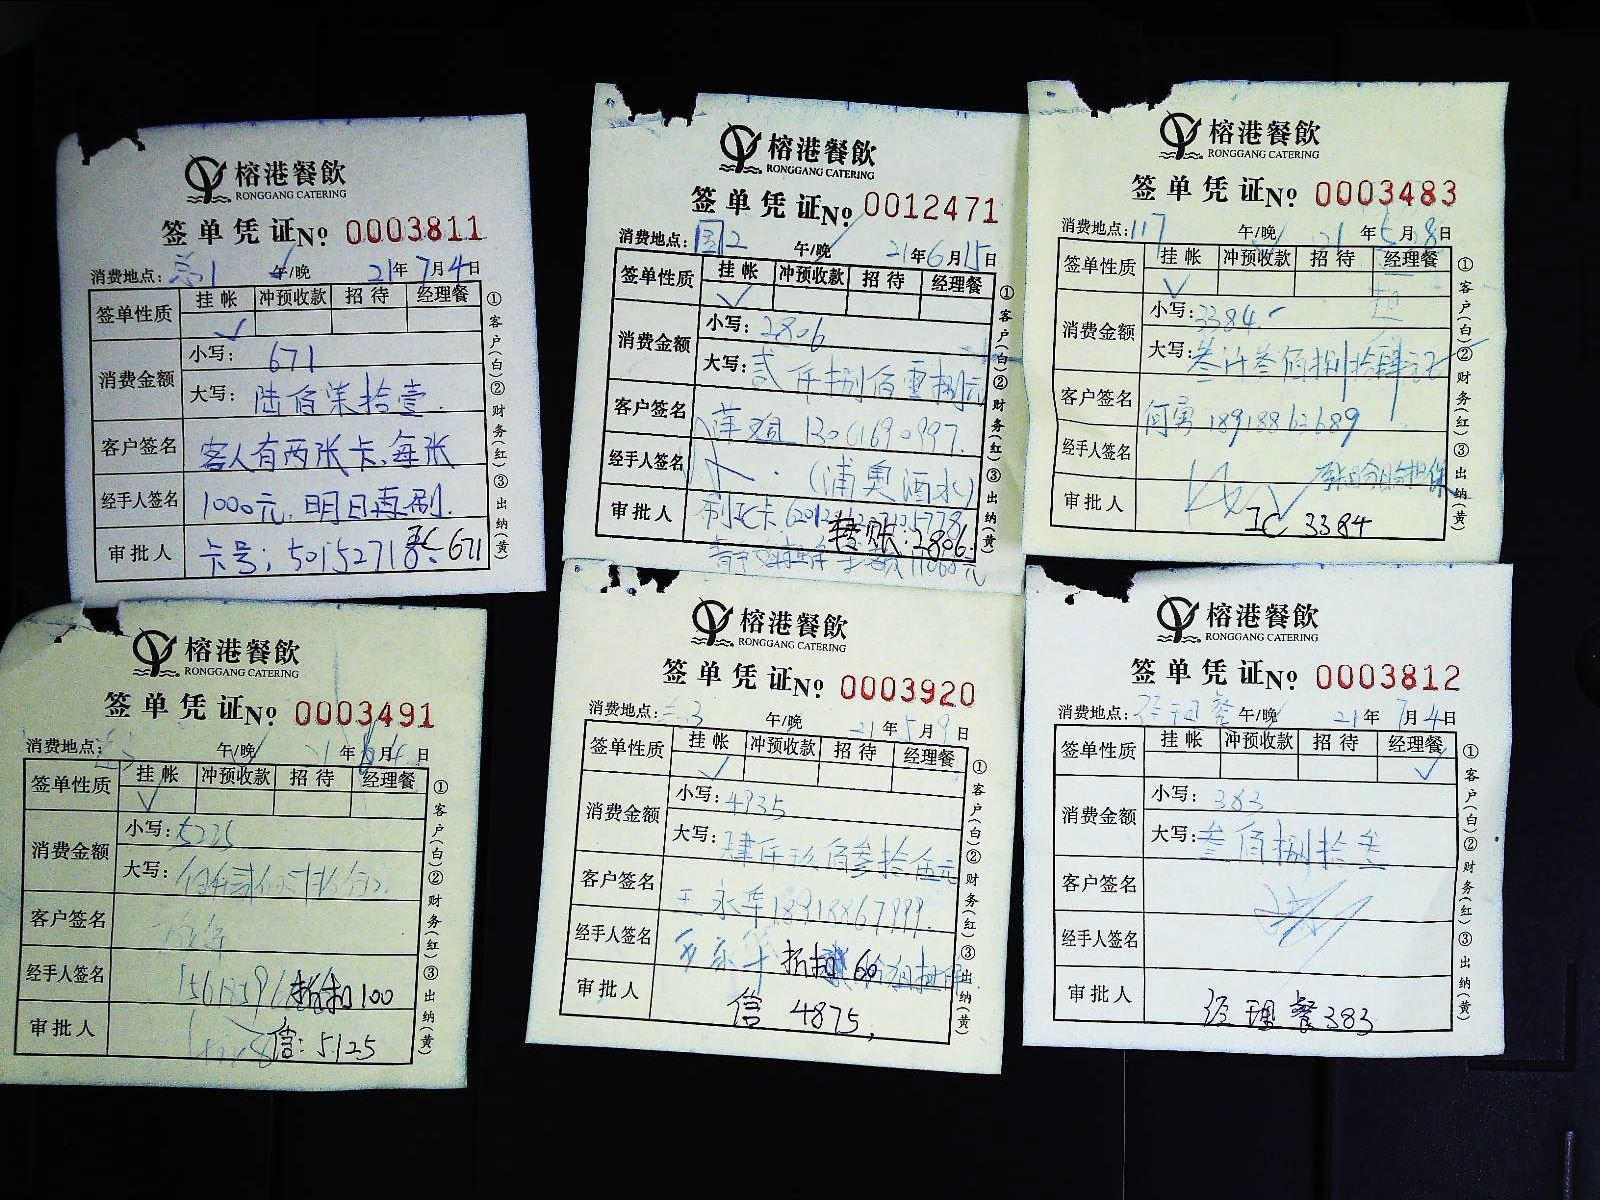 榕港餐飲
RONGGANG CATERING
签单凭证 No 0003811
消费地点: 1 午/晚 21年7月4日
签单性质 挂帐 冲预收款 招待 经理餐
消费金额 小写: 671
大写: 陆佰柒拾壹.
客户签名 客人有两张卡,每张
经手人签名 1000元,明日再刷.
审批人 卡号: 50152718 671
①客户(白)②财务(红)③出纳(黄)
榕港餐飲
RONGGANG CATERING
签单凭证 No 0012471
消费地点: 2 午/晚 21年6月15日
签单性质 挂帐 冲预收款 招待 经理餐
消费金额 小写: 2806
大写: 贰仟捌佰零捌元
客户签名
经手人签名 (浦奥酒水)
审批人 转账: 2806.
①客户(白)②财务(红)③出纳(黄)
榕港餐飲
RONGGANG CATERING
签单凭证 No 0003483
消费地点: 117 午/晚 21年5月8日
签单性质 挂帐 冲预收款 招待 经理餐
消费金额 小写: 3384.-
大写: 叁仟叁佰捌拾肆元正
客户签名 何勇 18918862689
经手人签名
审批人 IC 3384
①客户(白)②财务(红)③出纳(黄)
榕港餐飲
RONGGANG CATERING
签单凭证 No 0003491
消费地点: 午/晚 21年 月4日
签单性质 挂帐 冲预收款 招待 经理餐
消费金额 小写: 5225
大写:
客户签名
经手人签名 折扣100
审批人 信: 5125
①客户(白)②财务(红)③出纳(黄)
榕港餐飲
RONGGANG CATERING
签单凭证 No 0003920
消费地点: 3 午/晚 21年5月9日
签单性质 挂帐 冲预收款 招待 经理餐
消费金额 小写: 4935
大写: 肆仟玖佰叁拾伍元
客户签名 王永华 18918867999.
经手人签名 折扣 60
审批人 信 4875,
①客户(白)②财务(红)③出纳(黄)
榕港餐飲
RONGGANG CATERING
签单凭证 No 0003812
消费地点: 经理餐 午/晚 21年7月4日
签单性质 挂帐 冲预收款 招待 经理餐
消费金额 小写: 383
大写: 叁佰捌拾叁
客户签名
经手人签名
审批人 经理餐383
①客户(白)②财务(红)③出纳(黄)